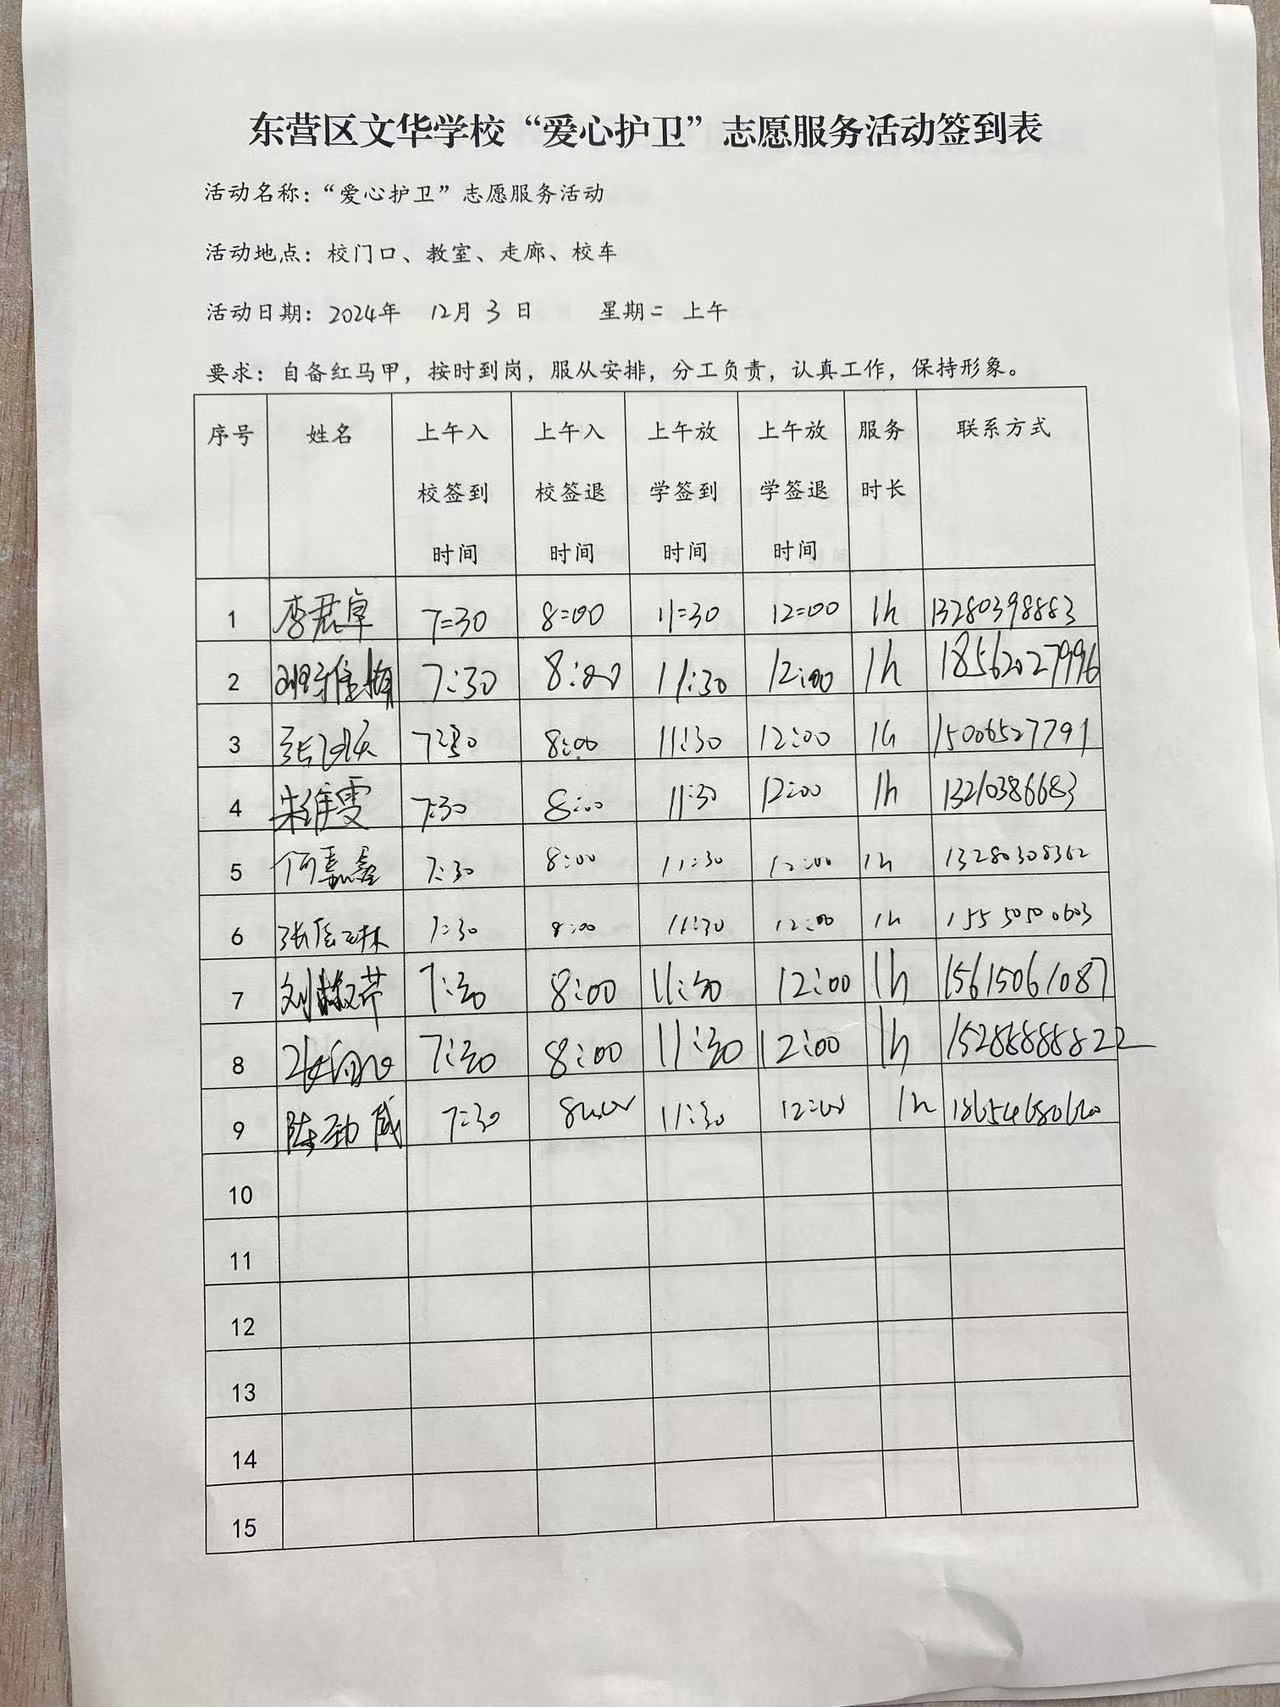 东营区文华学校“爱心护卫”志愿服务活动签到表
活动名称：“爱心护卫”志愿服务活动
活动地点：校门口、教室、走廊、校车
活动日期：2024年 12月 3日 星期二 上午
要求：自备红马甲，按时到岗，服从安排，分工负责，认真工作，保持形象。
序号 姓名 上午入校签到时间 上午入校签退时间 上午放学签到时间 上午放学签退时间 服务时长 联系方式
1 李君卓 7:30 8:00 11:30 12:00 1h 13280398883
2 7:30 8:00 11:30 12:00 1h 18562027996
3 7:30 8:00 11:30 12:00 1h 15006527791
4 朱维雯 7:30 8:00 11:30 12:00 1h 13210386683
5 何嘉鑫 7:30 8:00 11:30 12:00 1h 13280308362
6 7:30 8:00 11:30 12:00 1h 15550500603
7 7:30 8:00 11:30 12:00 1h 15615061087
8 7:30 8:00 11:30 12:00 1h
9 陈劲威 7:30 8:00 11:30 12:00 1h
10
11
12
13
14
15